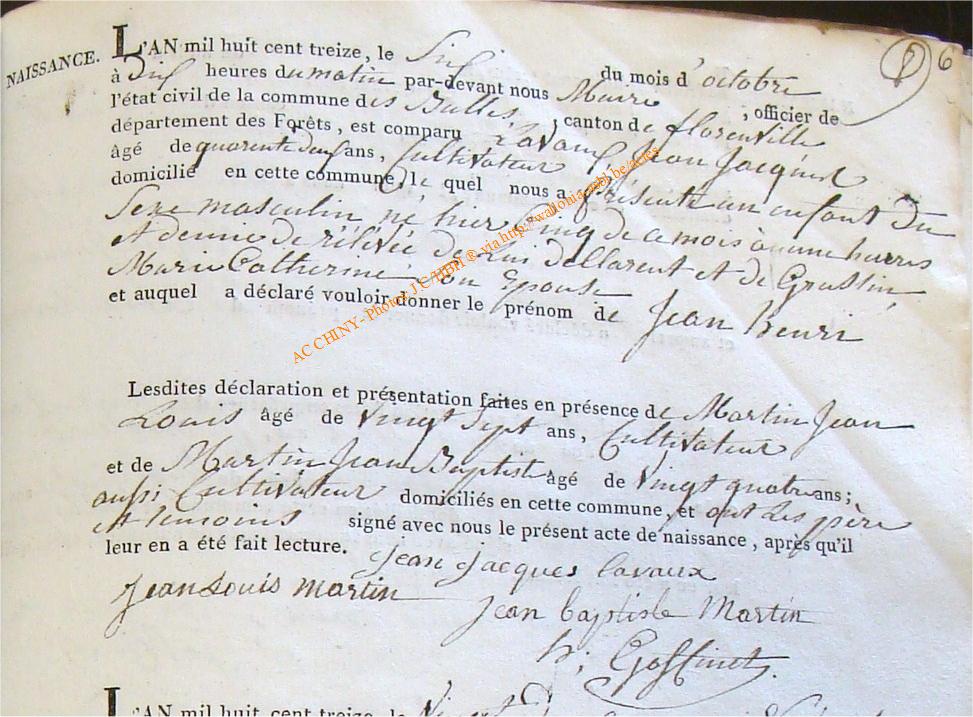 6
NAISSANCE.
L'AN mil huit cent treize, le Six du mois d'octobre
à Dix heures du matin par-devant nous Maire, officier de
l'état civil de la commune des Bulles, canton de florenville
département des Forêts, est comparu Lavaux Jean Jacques
âgé de quarente Deux ans, Cultivateur
domicilié en cette commune, le quel nous a présenté un enfant Du
Sexe masculin né hier Cinq de ce mois à une heures
et demie de rélévée de Lui Déclarent et de
Marie Catherine son Epouse
et auquel a déclaré vouloir donner le prénom de Jean henri
Lesdites déclaration et présentation faites en présence de Martin Jean
Louis âgé de Vingt Sept ans, Cultivateur
et de Martin Jean Baptiste âgé de Vingt quatre ans;
aussi Cultivateur domiciliés en cette commune, et ont Les père
et temoins signé avec nous le présent acte de naissance, après qu'il
leur en a été fait lecture. jean jacques lavaux
Jean Louis martin
jean baptiste Martin
h; Goffinet
L'AN mil huit cent treize, le Vingt
AC CHINY - Photos J C HBH ® via http://wallonia.mbl.be/actes